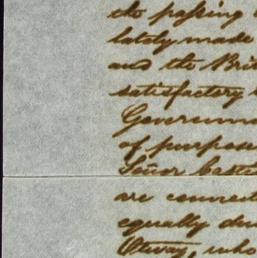 the passing
lately made
and the Brit
satisfactory
Governme
of purpose
Señor Caste
are connect
equally du
Otway, who